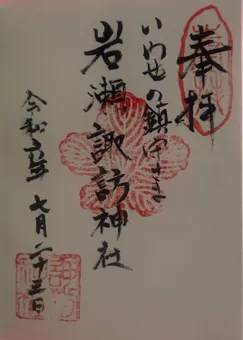 奉拝
いわせの鎮守さま
岩瀬諏訪神社
令和六年
七月二十三日